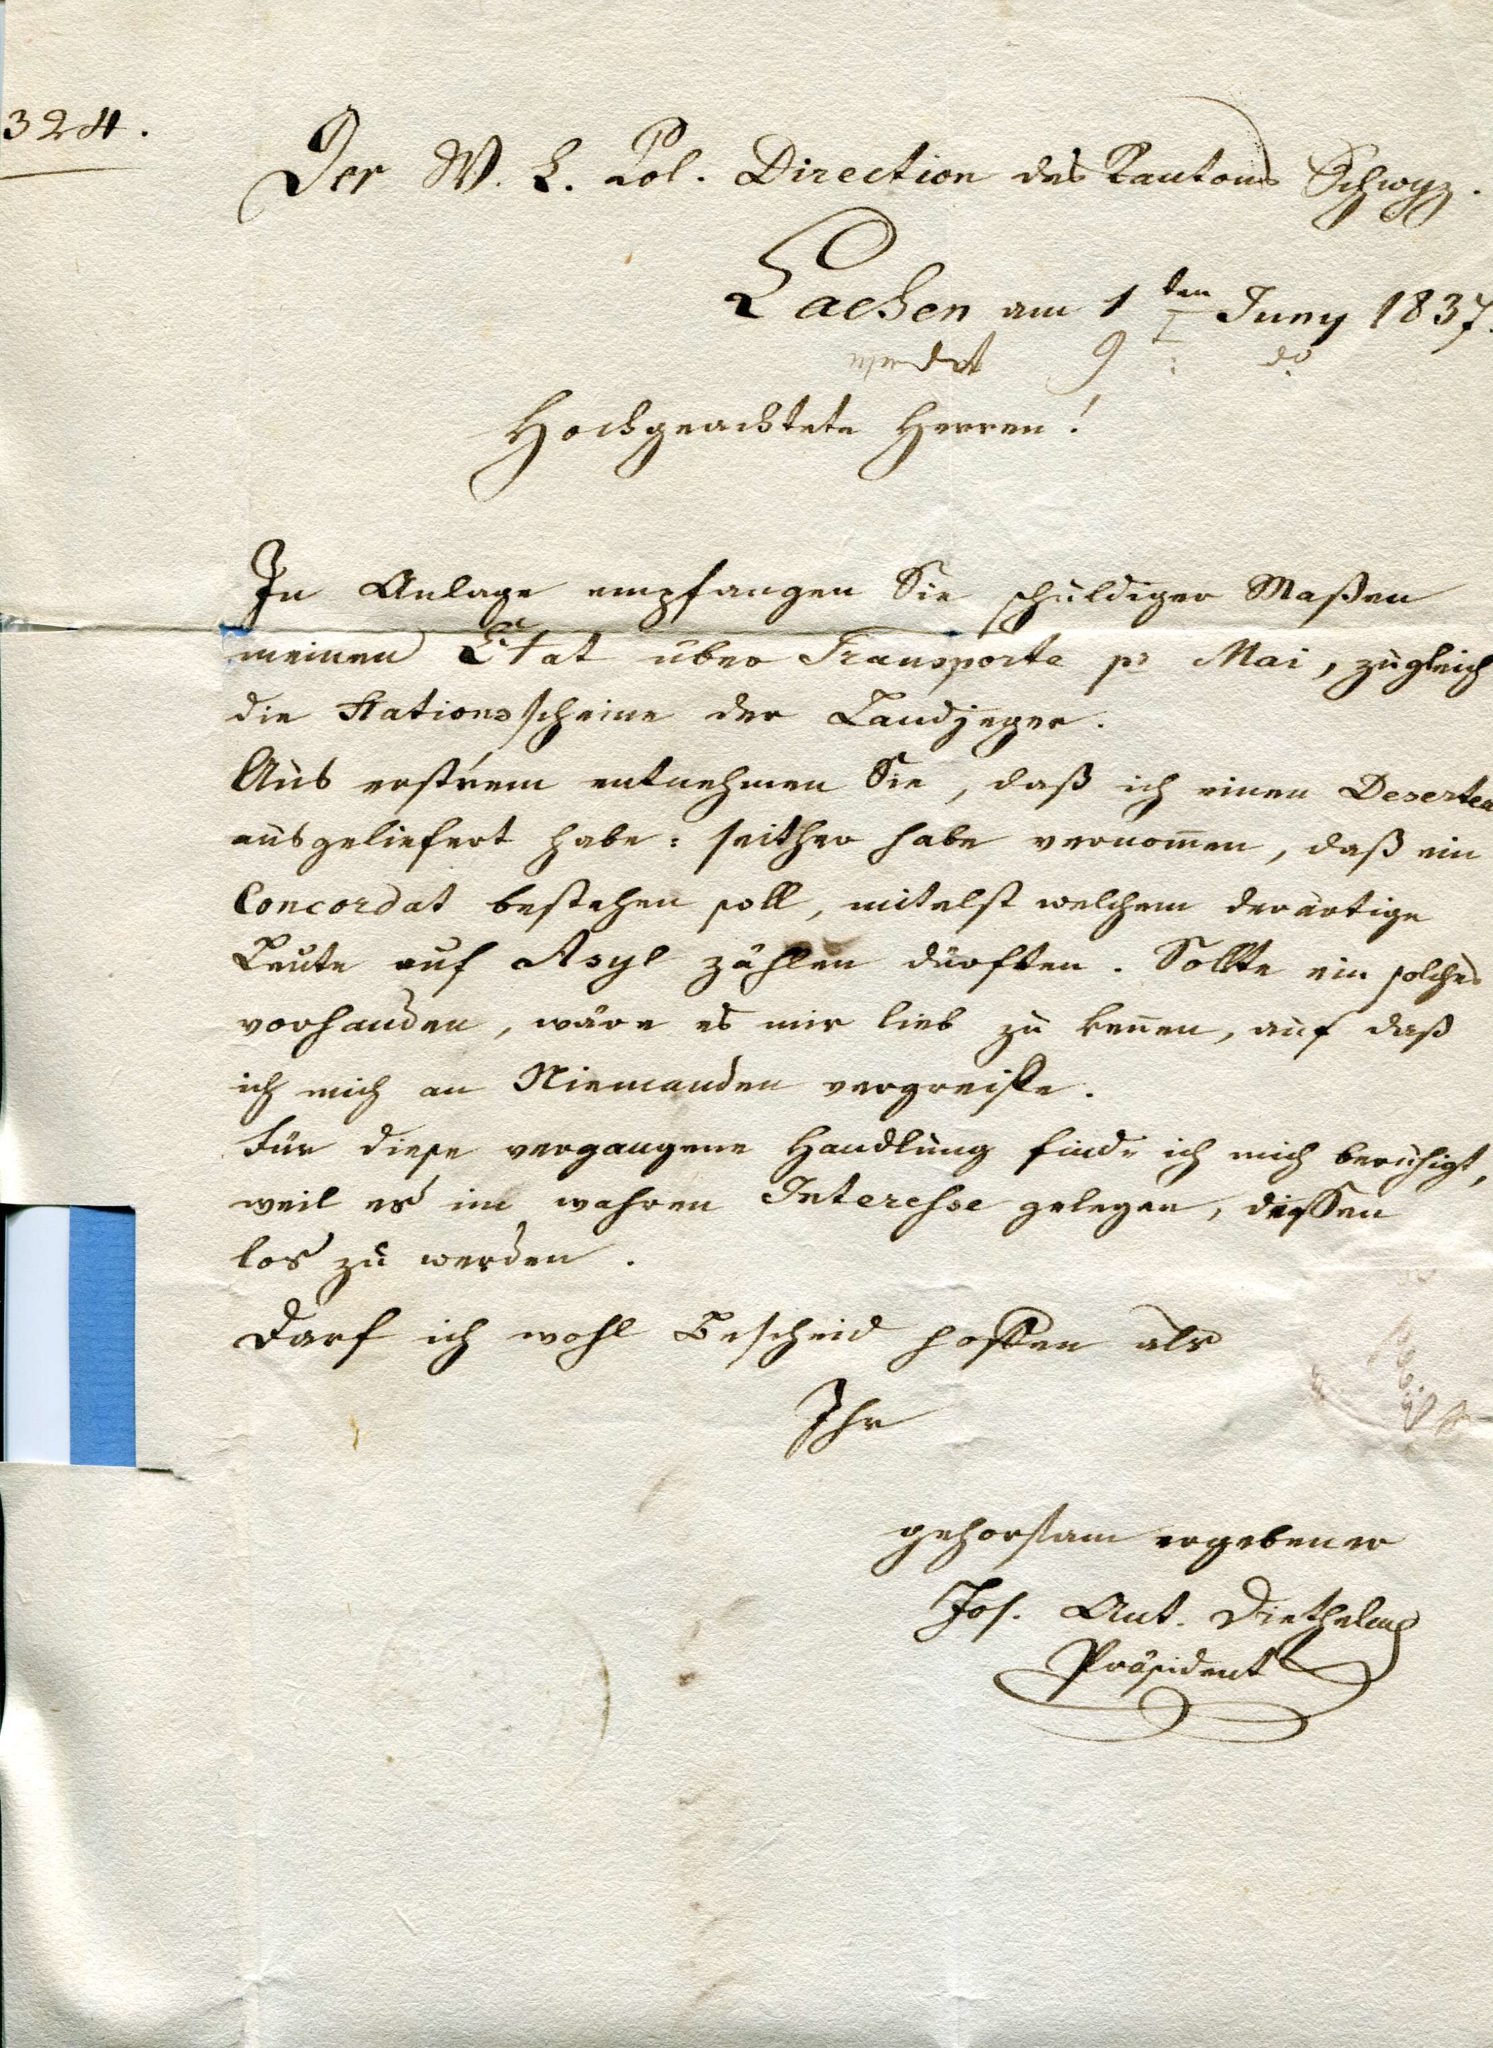 324.
Der W. L. Pol. Direction des Kantons Schwyz.
Lachen am 1ten Juny 1837.
9 : do
Hochgeachtete Herren!
In Anlage empfangen Sie schuldiger Maßen
meinen Etat über Transporte pr Mai, zugleich
die Stationsscheine der Landjeger.
Aus erst'rem entnehmen Sie, daß ich einen Deserteu
ausgeliefert habe: seither habe vernom̅en, daß ein
Concordat bestehen soll, mitelst welchem derartige
Leute auf Asyl zählen dürften. Sollte ein solches
vorhanden, wäre es mir lieb zu ken̅en, auf daß
ich mich an Niemanden vergreiffe.
Für diese vergangene Handlung finde ich mich beruhigt,
weil es im wahren Interesse gelegen, dessen
los zu werden.
Darf ich wohl Bescheid hoffen als
Ihr
gehorsam ergebener
Jos. Ant. Diethelm
Präsident